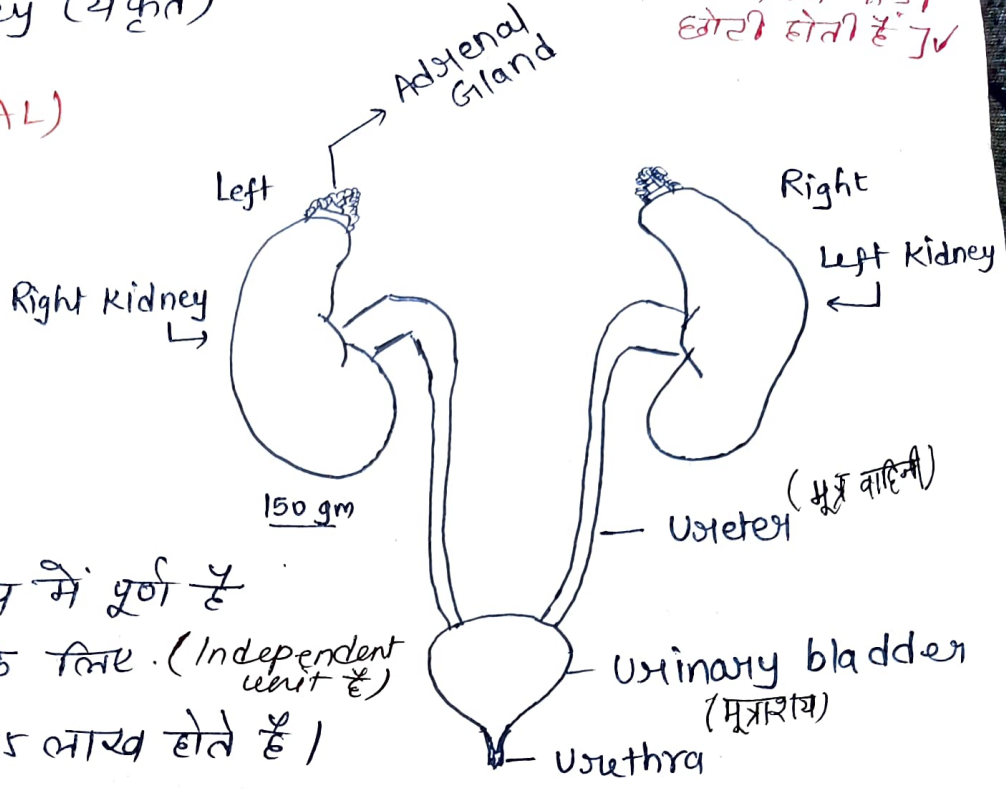 (यकृत)
छोटी होती हैं ]✓
AL)
Adrenal
Gland
Left
Right
Left Kidney
Right Kidney
150 gm
Ureter (मूत्र वाहिनी)
में पूर्ण है
लिए. (Independent
unit है)
Urinary bladder
(मूत्राशय)
लाख होते हैं।
Urethra